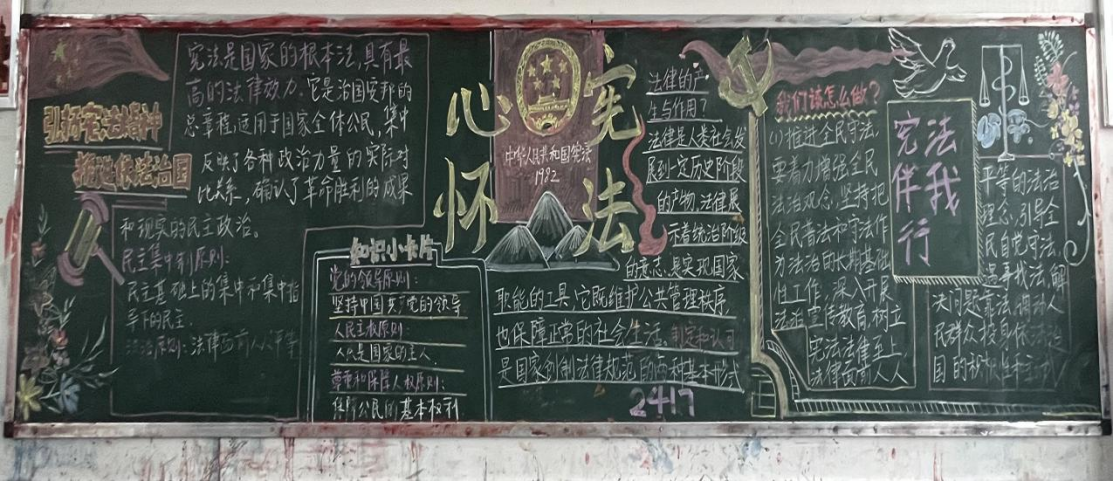 弘扬宪法精神
推进依法治国
宪法是国家的根本法,具有最
高的法律效力。它是治国安邦的
总章程,适用于国家全体公民,集中
反映了各种政治力量的实际对
比关系,确认了革命胜利的成果
和现实的民主政治。
民主集中制原则:
民主基础上的集中和集中指
导下的民主.
法治原则:法律面前人人平等
知识小卡片
党的领导原则:
坚持中国共产党的领导
人民主权原则:
人民是国家的主人.
尊重和保障人权原则:
保障公民的基本权利
心怀
宪法
中华人民共和国宪法
1982
法律的产
生与作用?
法律是人类社会发
展到一定历史阶段
的产物,法律展
示着统治阶级
的意志,是实现国家
职能的工具,它既维护公共管理秩序,
也保障正常的社会生活。制定和认可
是国家创制法律规范的两种基本形式
2417
我们该怎么做?
(1)推进全民守法,
要着力增强全民
法治观念,坚持把
全民普法和守法作
为依法治的长期基础
性工作,深入开展
法治宣传教育,树立
宪法法律至上
法律面前人人
平等的法治
理念,引导全
民自觉守法,
遇事找法,解
决问题靠法,
民群众投身依法治
国的
宪法
伴我
行